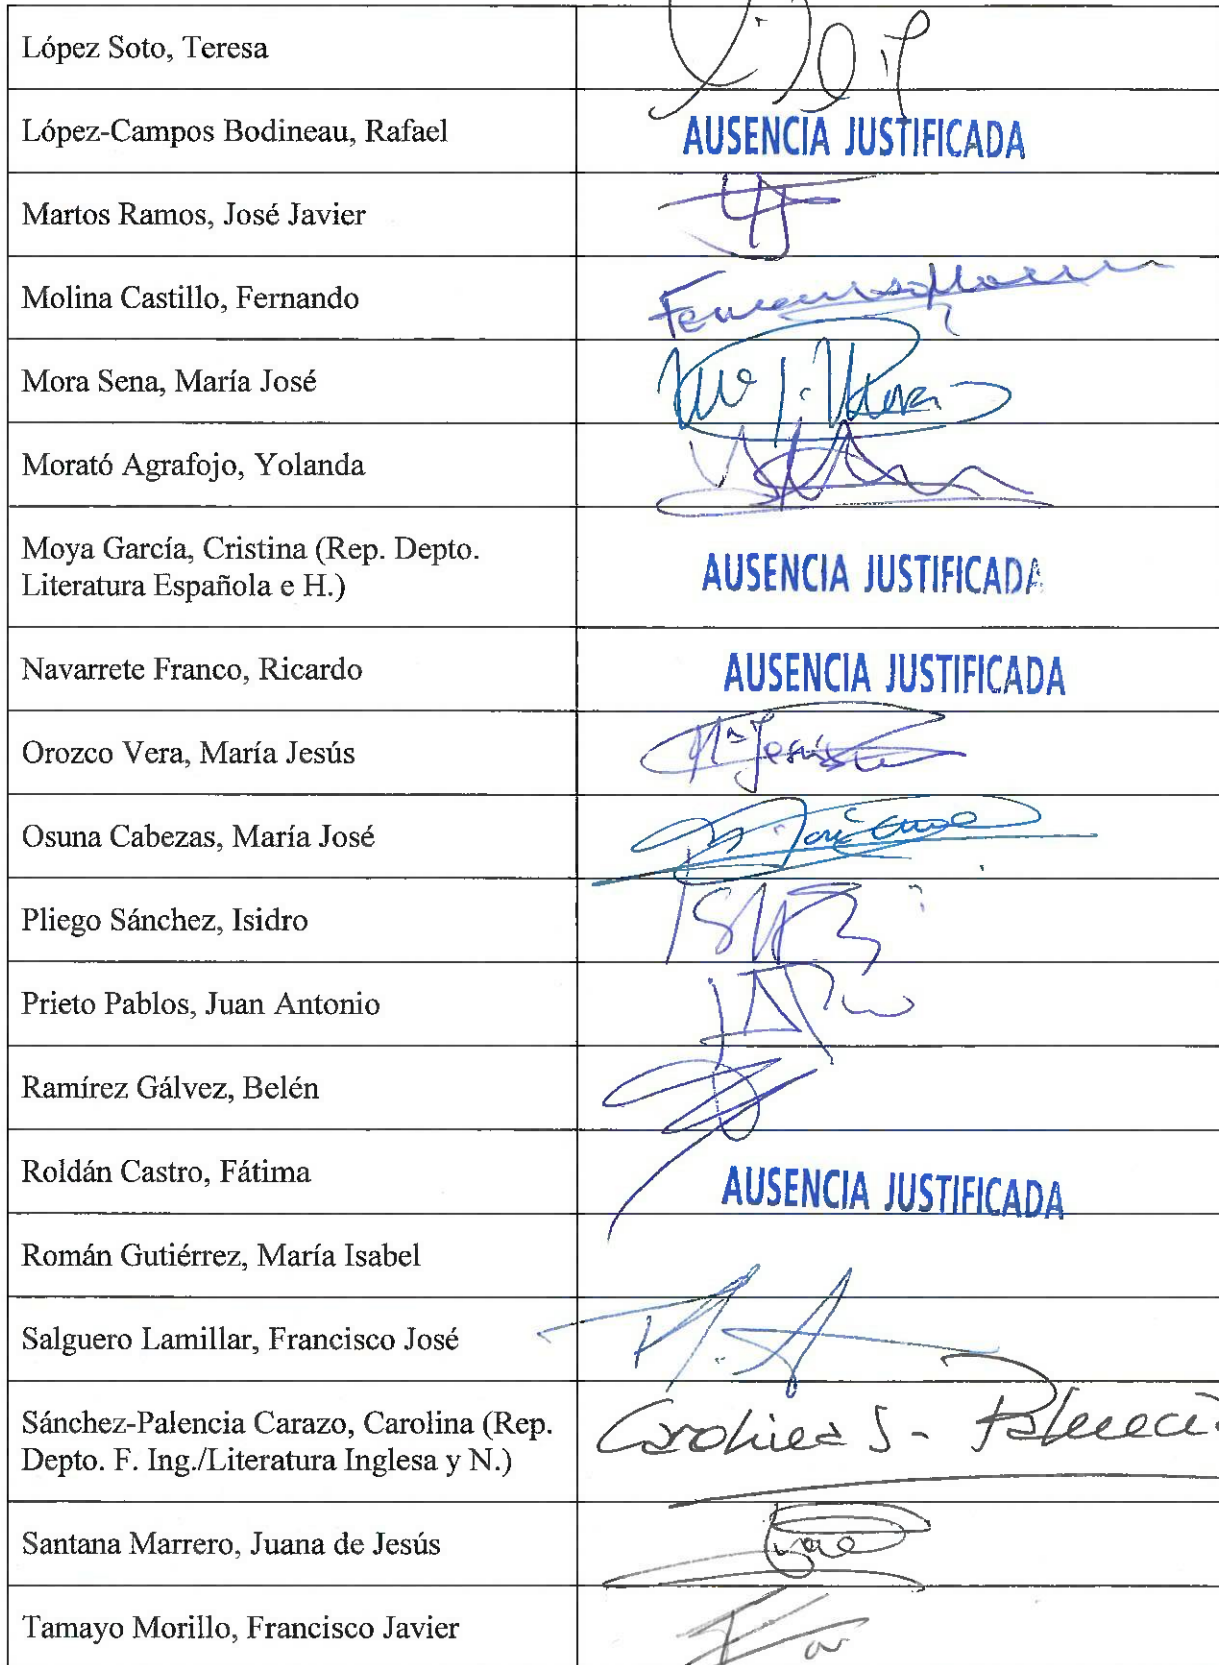 López Soto, Teresa
López-Campos Bodineau, Rafael
AUSENCIA JUSTIFICADA
Martos Ramos, José Javier
Molina Castillo, Fernando
Mora Sena, María José
Morató Agrafojo, Yolanda
Moya García, Cristina (Rep. Depto.
Literatura Española e H.)
AUSENCIA JUSTIFICADA
Navarrete Franco, Ricardo
AUSENCIA JUSTIFICADA
Orozco Vera, María Jesús
Mª Jesús
Osuna Cabezas, María José
Pliego Sánchez, Isidro
Prieto Pablos, Juan Antonio
Ramírez Gálvez, Belén
Roldán Castro, Fátima
AUSENCIA JUSTIFICADA
Román Gutiérrez, María Isabel
Salguero Lamillar, Francisco José
Sánchez-Palencia Carazo, Carolina (Rep.
Depto. F. Ing./Literatura Inglesa y N.)
Carolina S- Palencia
Santana Marrero, Juana de Jesús
Tamayo Morillo, Francisco Javier